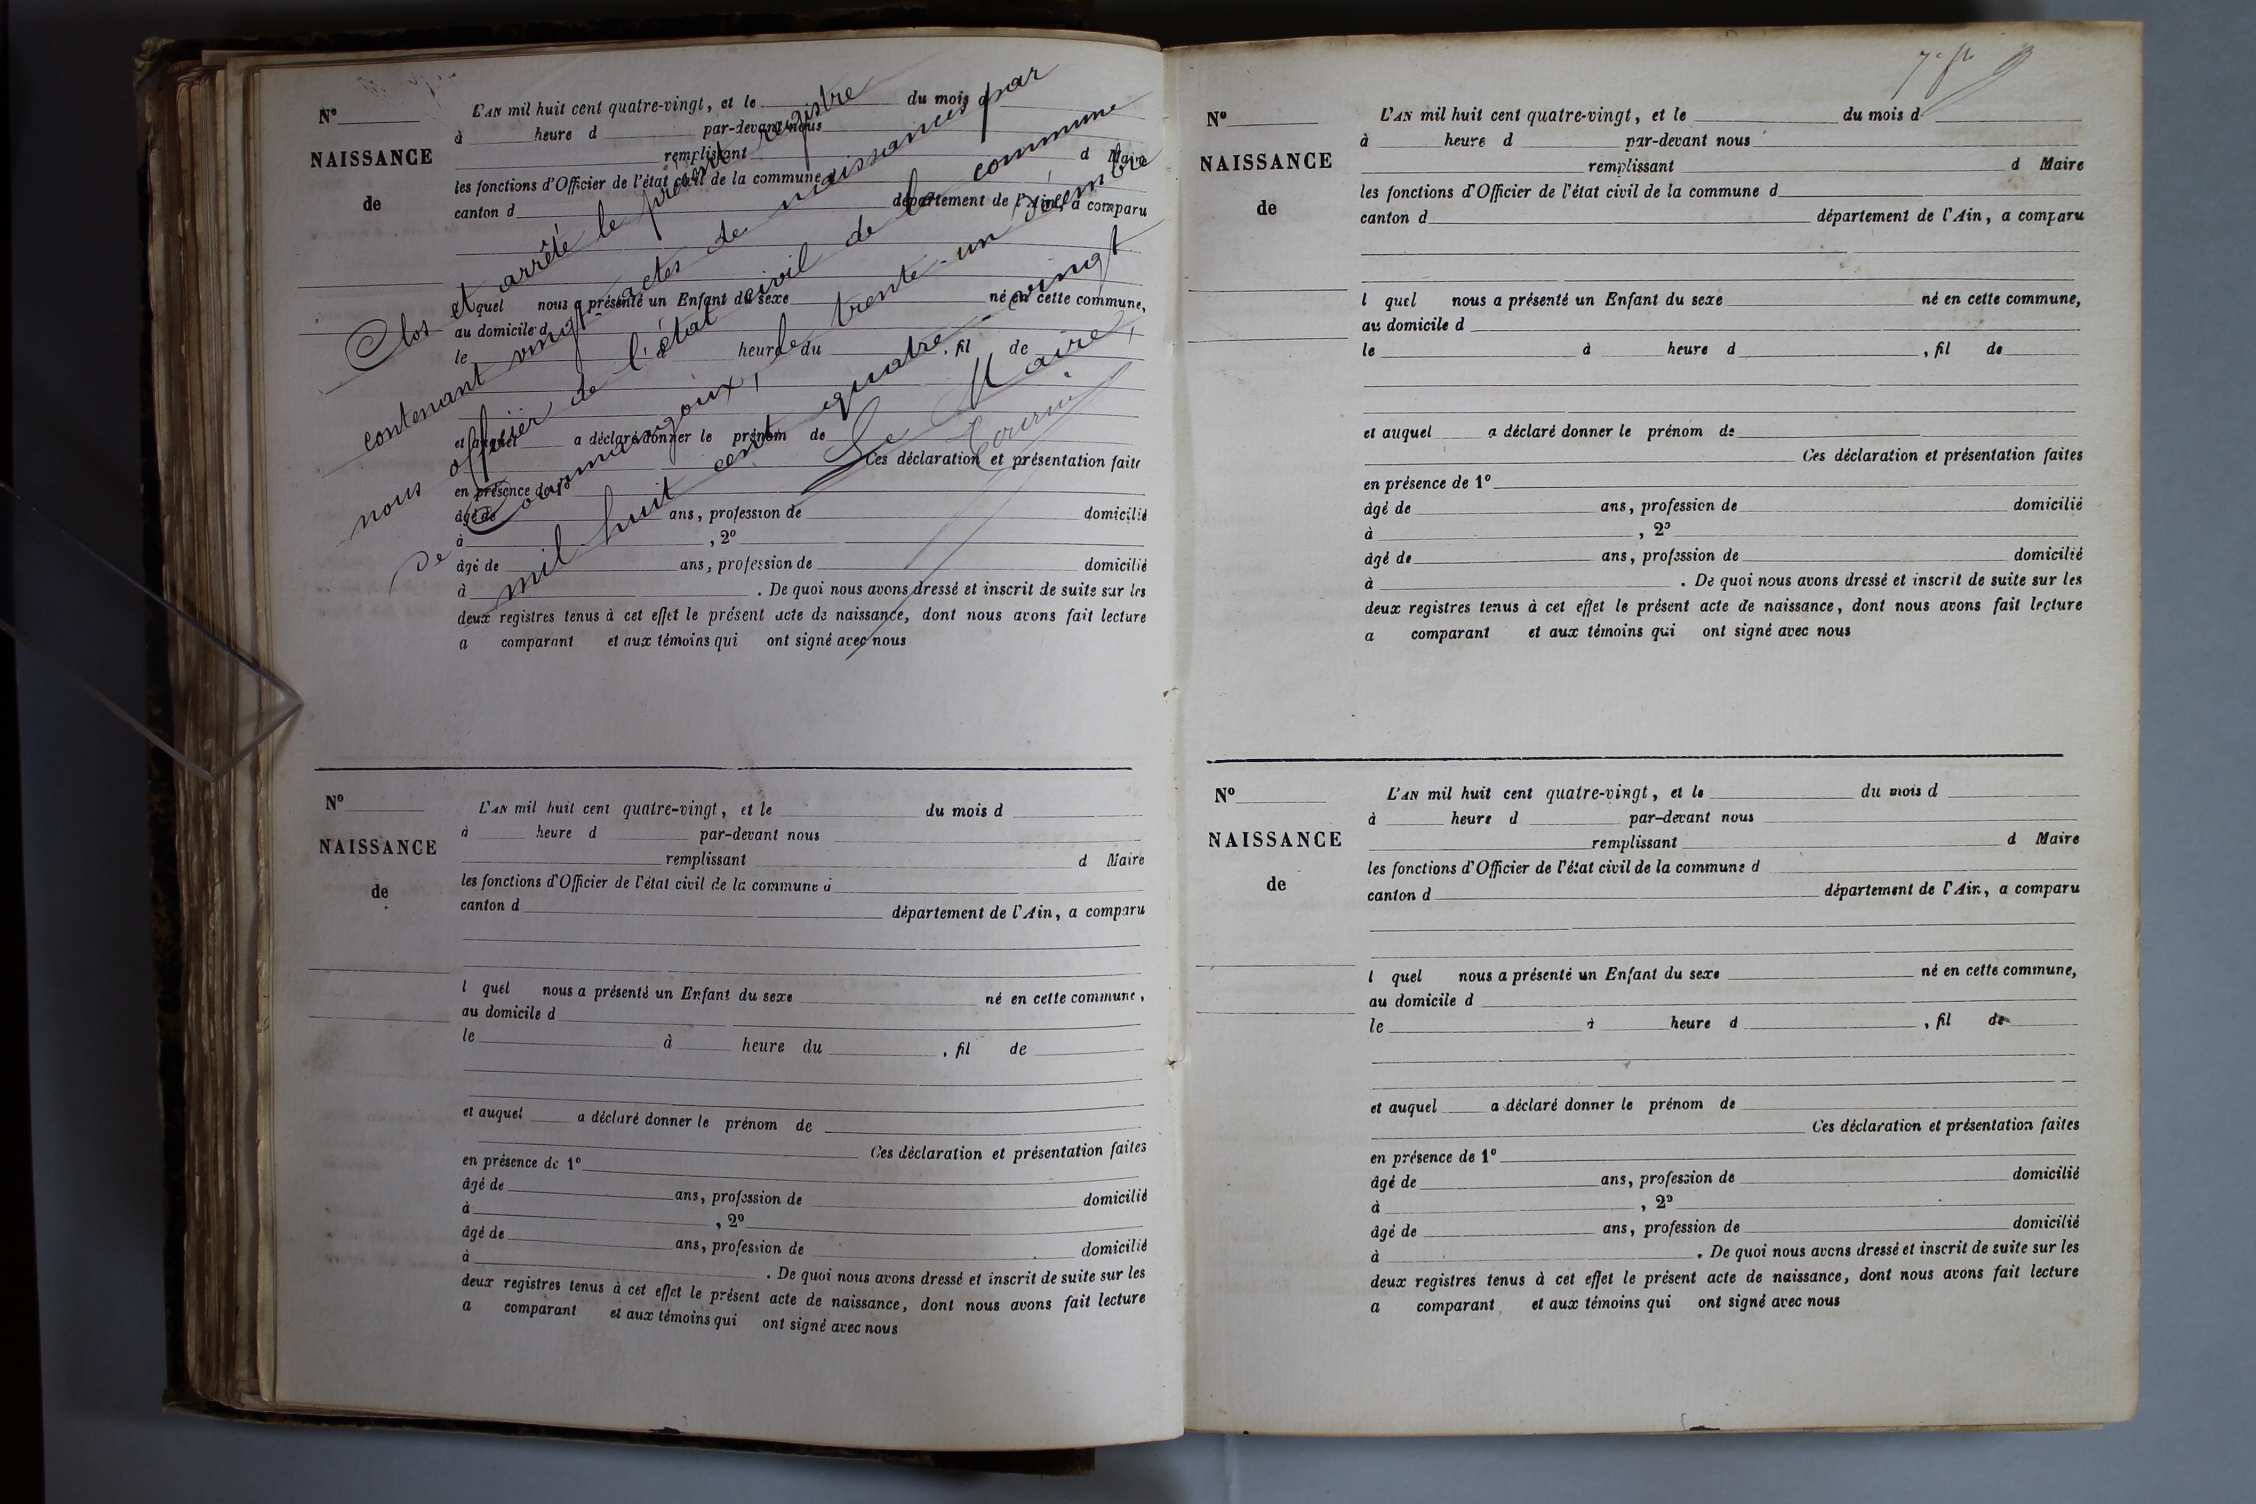 Nº
NAISSANCE
de
L'AN mil huit cent quatre-vingt, et le du mois d
à heure d par-devant nous
remplissant d Maire
les fonctions d'Officier de l'état civil de la commune d
canton d département de l'Ain, a comparu
l quel nous a présenté un Enfant du sexe né en cette commune,
au domicile d
le à heure du , fil de
et auquel a déclaré donner le prénom de
Ces déclaration et présentation faites
en présence de 1º
âgé de ans, profession de domicilié
à , 2º
âgé de ans, profession de domicilié
à . De quoi nous avons dressé et inscrit de suite sur les
deux registres tenus à cet effet le présent acte de naissance, dont nous avons fait lecture
a comparant et aux témoins qui ont signé avec nous
Clos et arrêté le présent registre
contenant vingt actes de naissances par
nous officier de l'état civil de la commune
de Cormarangoux, le trente-un décembre
mil huit cent quatre-vingt
Le Maire,
Nº
NAISSANCE
de
L'AN mil huit cent quatre-vingt, et le du mois d
à heure d par-devant nous
remplissant d Maire
les fonctions d'Officier de l'état civil de la commune d
canton d département de l'Ain, a comparu
l quel nous a présenté un Enfant du sexe né en cette commune,
au domicile d
le à heure du , fil de
et auquel a déclaré donner le prénom de
Ces déclaration et présentation faites
en présence de 1º
âgé de ans, profession de domicilié
à , 2º
âgé de ans, profession de domicilié
à . De quoi nous avons dressé et inscrit de suite sur les
deux registres tenus à cet effet le présent acte de naissance, dont nous avons fait lecture
a comparant et aux témoins qui ont signé avec nous
Nº
NAISSANCE
de
L'AN mil huit cent quatre-vingt, et le du mois d
à heure d par-devant nous
remplissant d Maire
les fonctions d'Officier de l'état civil de la commune d
canton d département de l'Ain, a comparu
l quel nous a présenté un Enfant du sexe né en cette commune,
au domicile d
le à heure d , fil de
et auquel a déclaré donner le prénom de
Ces déclaration et présentation faites
en présence de 1º
âgé de ans, profession de domicilié
à , 2º
âgé de ans, profession de domicilié
à . De quoi nous avons dressé et inscrit de suite sur les
deux registres tenus à cet effet le présent acte de naissance, dont nous avons fait lecture
a comparant et aux témoins qui ont signé avec nous
Nº
NAISSANCE
de
L'AN mil huit cent quatre-vingt, et le du mois d
à heure d par-devant nous
remplissant d Maire
les fonctions d'Officier de l'état civil de la commune d
canton d département de l'Ain, a comparu
l quel nous a présenté un Enfant du sexe né en cette commune,
au domicile d
le à heure d , fil de
et auquel a déclaré donner le prénom de
Ces déclaration et présentation faites
en présence de 1º
âgé de ans, profession de domicilié
à , 2º
âgé de ans, profession de domicilié
à . De quoi nous avons dressé et inscrit de suite sur les
deux registres tenus à cet effet le présent acte de naissance, dont nous avons fait lecture
a comparant et aux témoins qui ont signé avec nous